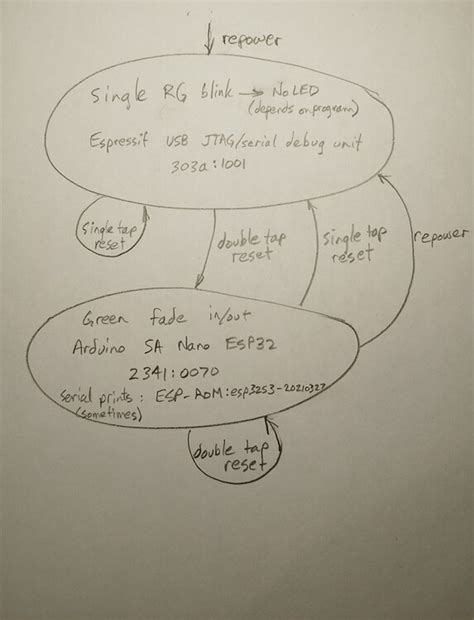 repower
Single RG blink → No LED
(depends on program)
Espressif USB JTAG/serial debug unit
303a:1001
Single tap
reset
double tap
reset
single tap
reset
repower
Green fade in/out
Arduino SA Nano ESP32
2341:0070
Serial prints : ESP-ROM:esp32s3-20210327
(sometimes)
double tap
reset